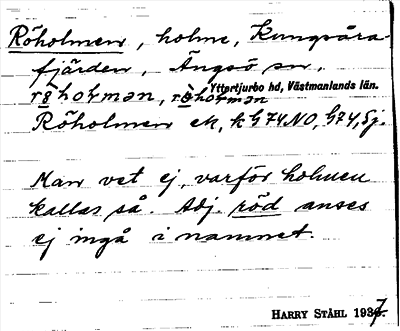 Röholmen, holme, Kungsåra-
fjärden, Ängsö sn,
Yttertjurbo hd, Västmanlands län.
Röholmen ek, kG74NO, G74, Sj.
Man vet ej, varför holmen
kallas så. Adj. röd anses
ej ingå i namnet.
HARRY STÅHL 1937.